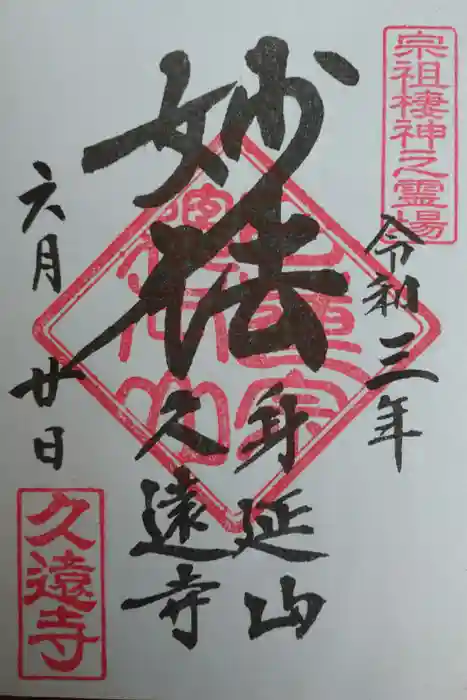 宗祖棲神之霊場
令和三年
妙法
身延山
久遠寺
六月廿日
久遠寺